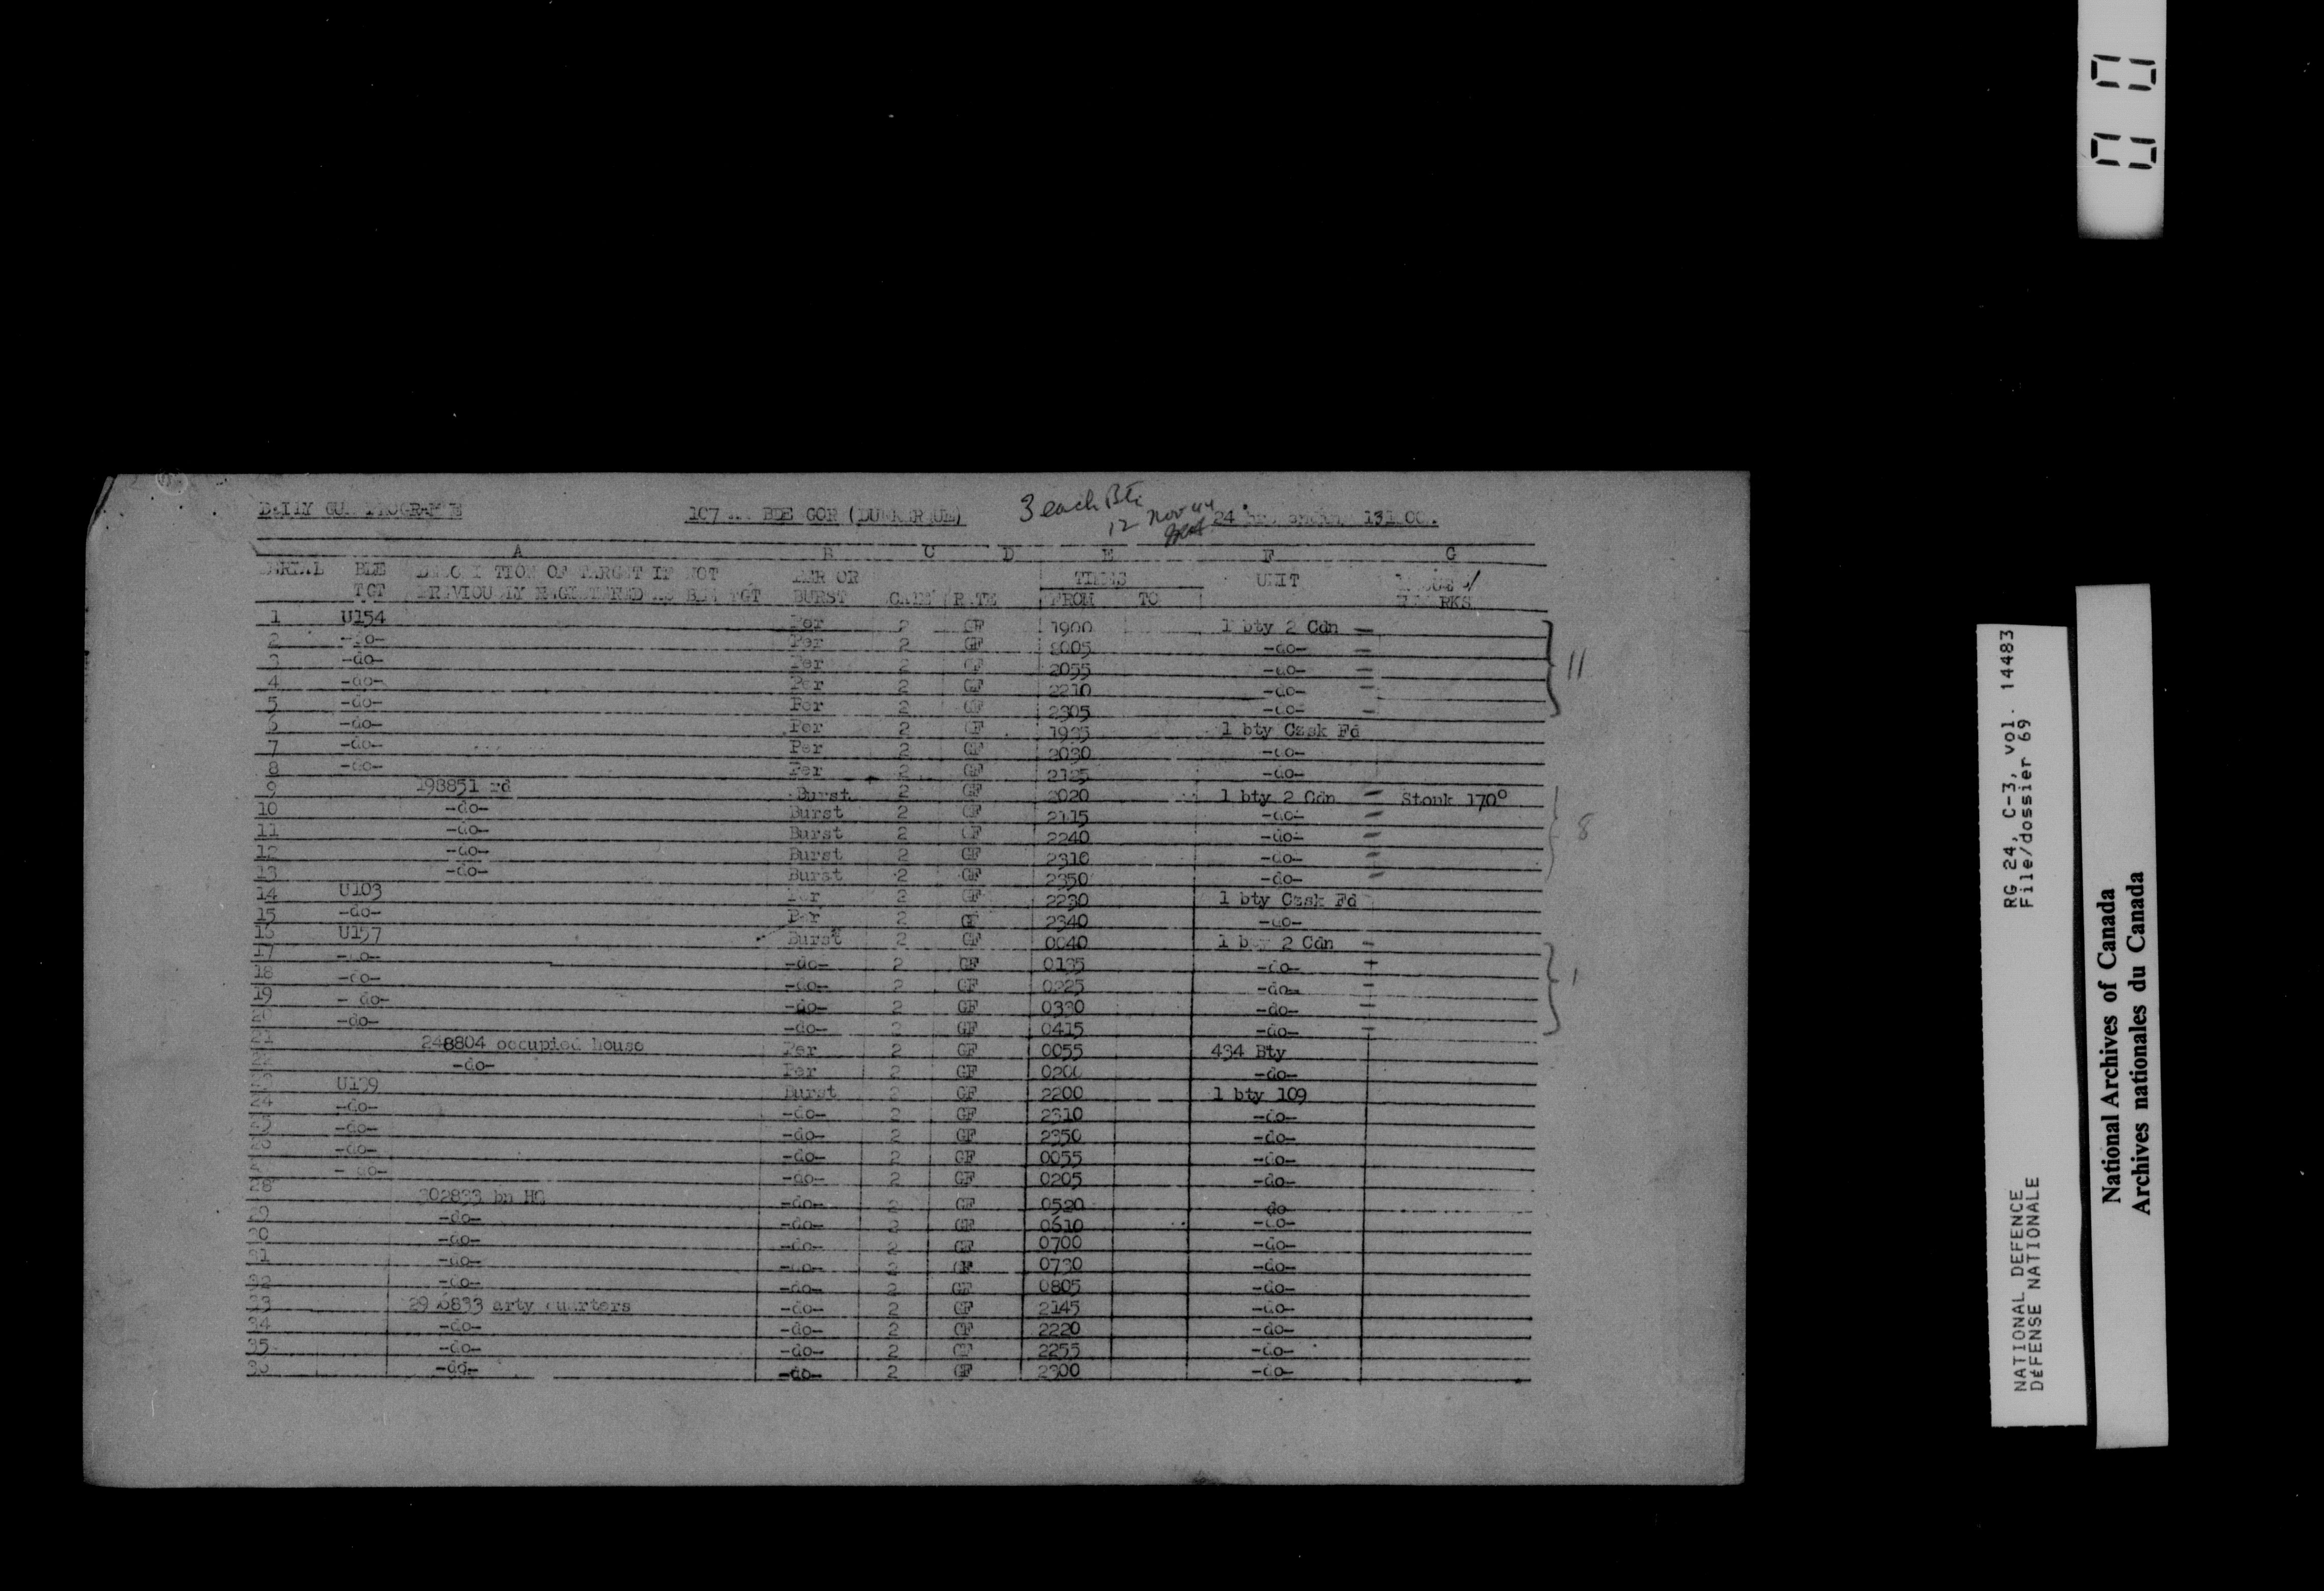 3 each Bti
12 Nov 44
107 BDE GOR (DUNKERQUE) 24 131 00.
A B C D E F G
SERIAL BDE DESCRIPTION OF TARGET IF NOT PER OR TIMES UNIT
TGT PREVIOUSLY REGISTERED AS BDE TGT BURST RATE FROM TO REMARKS
1 U154 Per 2 GF 1900 1 bty 2 Cdn —
2 -do- Per 2 GF 2005 -do- —
3 -do- Per 2 GF 2055 -do- —
4 -do- Per 2 GF 2210 -do- —
5 -do- Per 2 GF 2305 -do- —
11
6 -do- Per 2 GF 1935 1 bty Czsk Fd
7 -do- Per 2 GF 2030 -do-
8 -do- Per 2 GF 2125 -do-
9 198851 rd Burst 2 GF 2020 1 bty 2 Cdn — Stonk 170°
10 -do- Burst 2 GF 2115 -do- —
11 -do- Burst 2 GF 2240 -do- —
12 -do- Burst 2 GF 2310 -do- —
13 -do- Burst 2 GF 2350 -do- —
8
14 U103 Per 2 GF 2230 1 bty Czsk Fd
15 -do- Per 2 GF 2340 -do-
16 U157 Burst 2 GF 0040 1 bty 2 Cdn —
17 -do- -do- 2 GF 0135 -do- +
18 -do- -do- 2 GF 0225 -do- —
19 - do- -do- 2 GF 0330 -do- —
20 -do- -do- 2 GF 0415 -do- —
1
21 248804 occupied house Per 2 GF 0055 434 Bty
22 -do- Per 2 GF 0200 -do-
23 U139 Burst 2 GF 2200 1 bty 109
24 -do- -do- 2 GF 2310 -do-
25 -do- -do- 2 GF 2350 -do-
26 -do- -do- 2 GF 0055 -do-
27 - do- -do- 2 GF 0205 -do-
28 302833 bn HQ -do- 2 GF 0520 do
29 -do- -do- 2 GF 0610 -do-
30 -do- -do- 2 GF 0700 -do-
31 -do- -do- 2 GF 0730 -do-
32 -do- -do- 2 GF 0805 -do-
33 arty quarters -do- 2 GF 2145 -do-
34 -do- -do- 2 GF 2220 -do-
35 -do- -do- 2 GF 2255 -do-
36 -do- -do- 2 GF 2300 -do-
RG 24, C-3, vol. 14483
File/dossier 69
NATIONAL DEFENCE
DÉFENSE NATIONALE
National Archives of Canada
Archives nationales du Canada